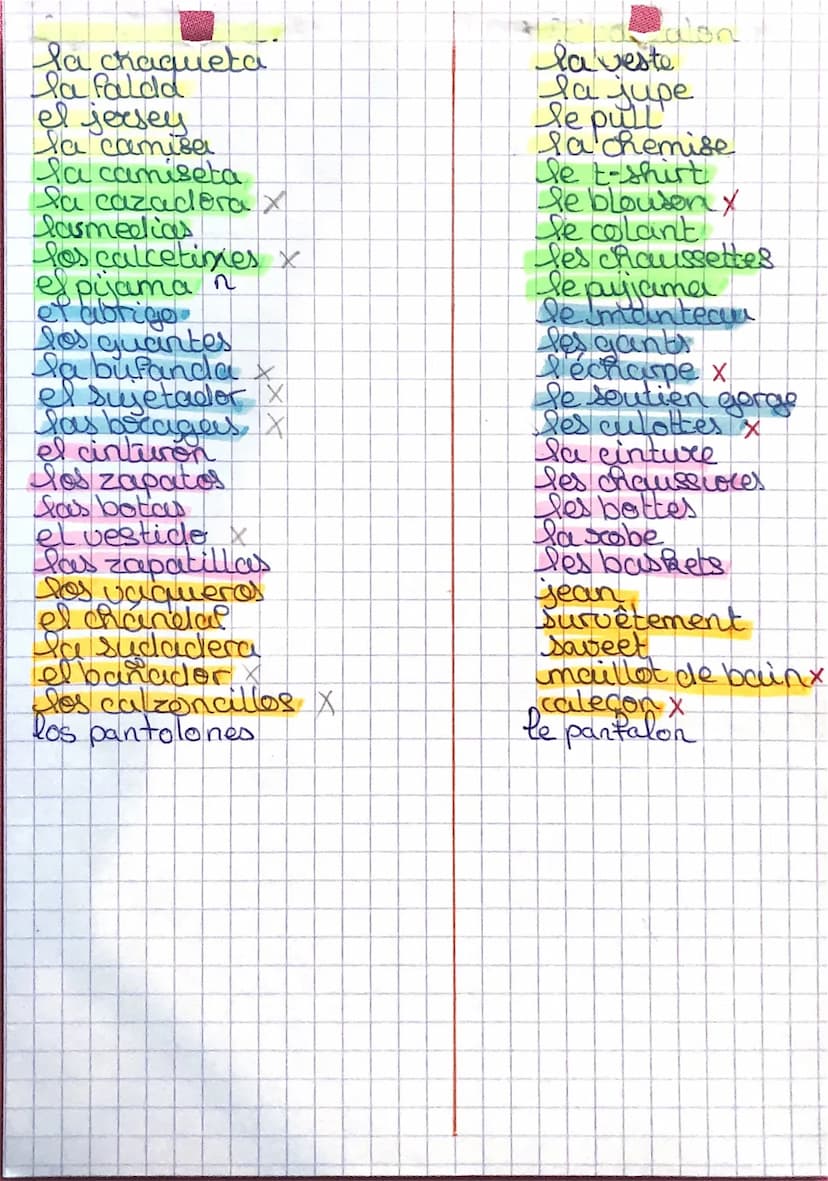 la chaqueta
la falda
el jersey
la camisa
la camiseta
la cazadora x
las medias
los calcetines x
el pijama n
el abrigo
los guantes
la bufanda x
el sujetador x
las bragas x
el cinturón
los zapatos
las botas
el vestido x
las zapatillas
los vaqueros
el chándal
la sudadera
el bañador x
los calzoncillos x
los pantolones
la veste
la jupe
le pull
la chemise
le t-shirt
le blouson x
le colant
les chaussettes
le pyjama
le manteau
les gants
l'écharpe x
le soutien gorge
les culottes x
la ceinture
les chaussures
les bottes
la robe
les baskets
jean
survêtement
sweet
maillot de bain x
caleçon x
le pantalon